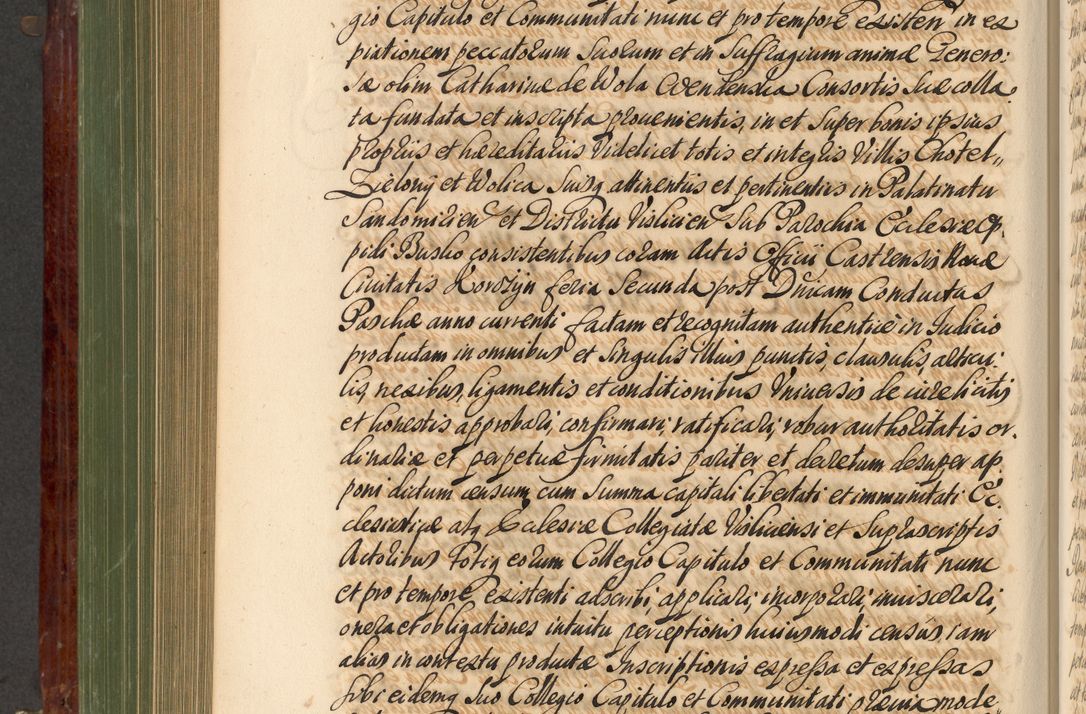 gio Capitulo et Communitati nunc et pro tempore existen in ex
piationem peccatorum suorum et in Suffragium animæ Genero:
sæ olim Catharinæ de Wola Consortis Suæ colla
ta fundata et inscripta provenientis, in et Super bonis ipsius
propriis et hæreditariis Videlicet totis et integris Villis Chotel„
Zielony et Wolica Suisq attinentiis et pertinentiis in Palatinatu
Sandomirien et Districtu Vislicien Sub Parochia Ecclesiæ Op
pidi Busko consistentibus coram Actis Officii Castrensis Novæ
Civitatis Korczyn feria Secunda post Dnicam Conductus
Paschæ anno currenti factam et recognitam authenticè in Judicio
productam in omnibus et Singulis illius punctis, clausulis, articu:
lis, nexibus, ligamentis et conditionibus Universis de iure licitis
et honestis approbari, confirmari, ratificari, robur authoritatis or.
dinariæ et perpetuæ firmitatis pariter et decretum desuper ap
poni dictum censum cum Summa capitali libertati et immunitati Ec.
clesiasticæ atq Ecclesiæ Collegiatæ Visliciensi et Suprascriptis
Actoribus Totiq eorum Collegio Capitulo et Communitati nunc
et pro tempore existenti adscribi, applicari, incorporari, inviscerari,
onera et obligationes intuitu perceptionis huiusmodi censûs, iam
alias in contextu productæ Inscriptionis expressa et expressas
sibi eidemq Suo Collegio Capitulo et Communitati præviâ mode„